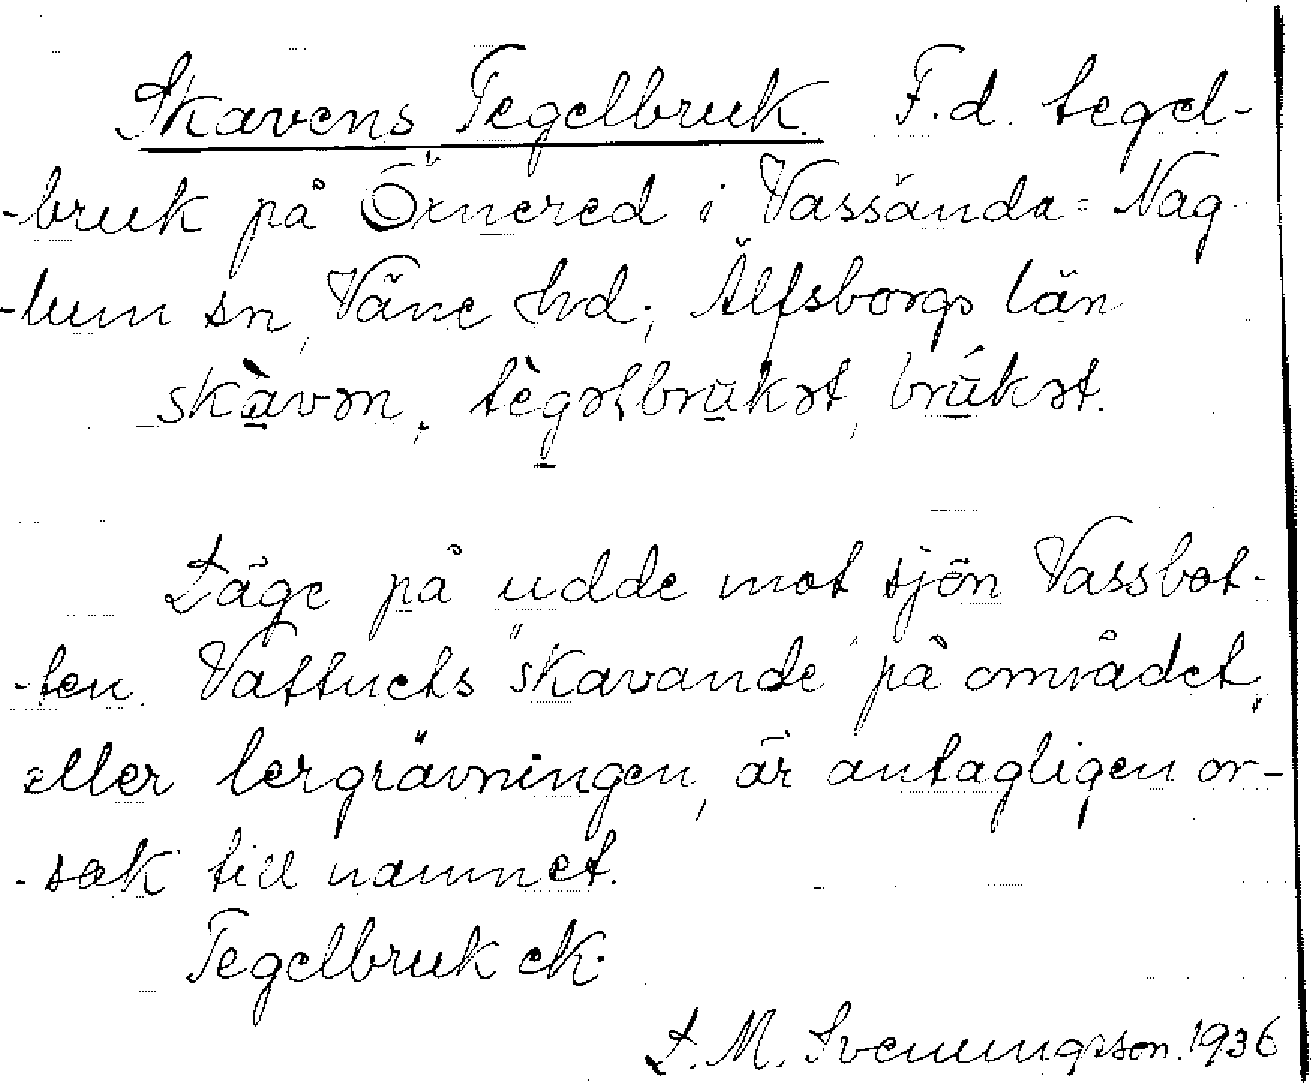 Skavens Tegelbruk. F.d. tegel-
-bruk på Öxnered i Vassända-Nag-
-lum sn, Väne hd; Älfsborgs län
skàvən, tègəlbrukət, brúkət.
Läge på udde mot sjön Vassbot-
-ten. Vattnets "skavande" på området,
eller lergrävningen, är antagligen or-
-sak till namnet.
Tegelbruk ek.
L. M. Svenungsson. 1936